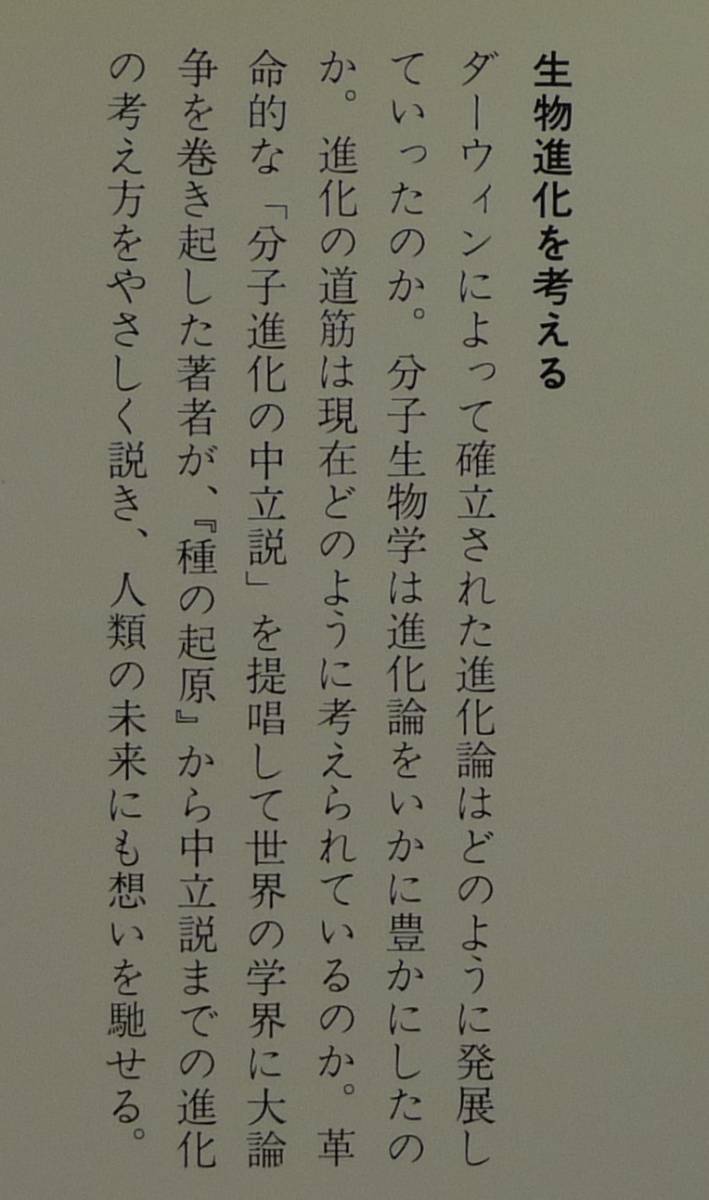 生物進化を考える
ダーウィンによって確立された進化論はどのように発展し
ていったのか。分子生物学は進化論をいかに豊かにしたの
か。進化の道筋は現在どのように考えられているのか。革
命的な「分子進化の中立説」を提唱して世界の学界に大論
争を巻き起した著者が、『種の起原』から中立説までの進化
の考え方をやさしく説き、人類の未来にも想いを馳せる。